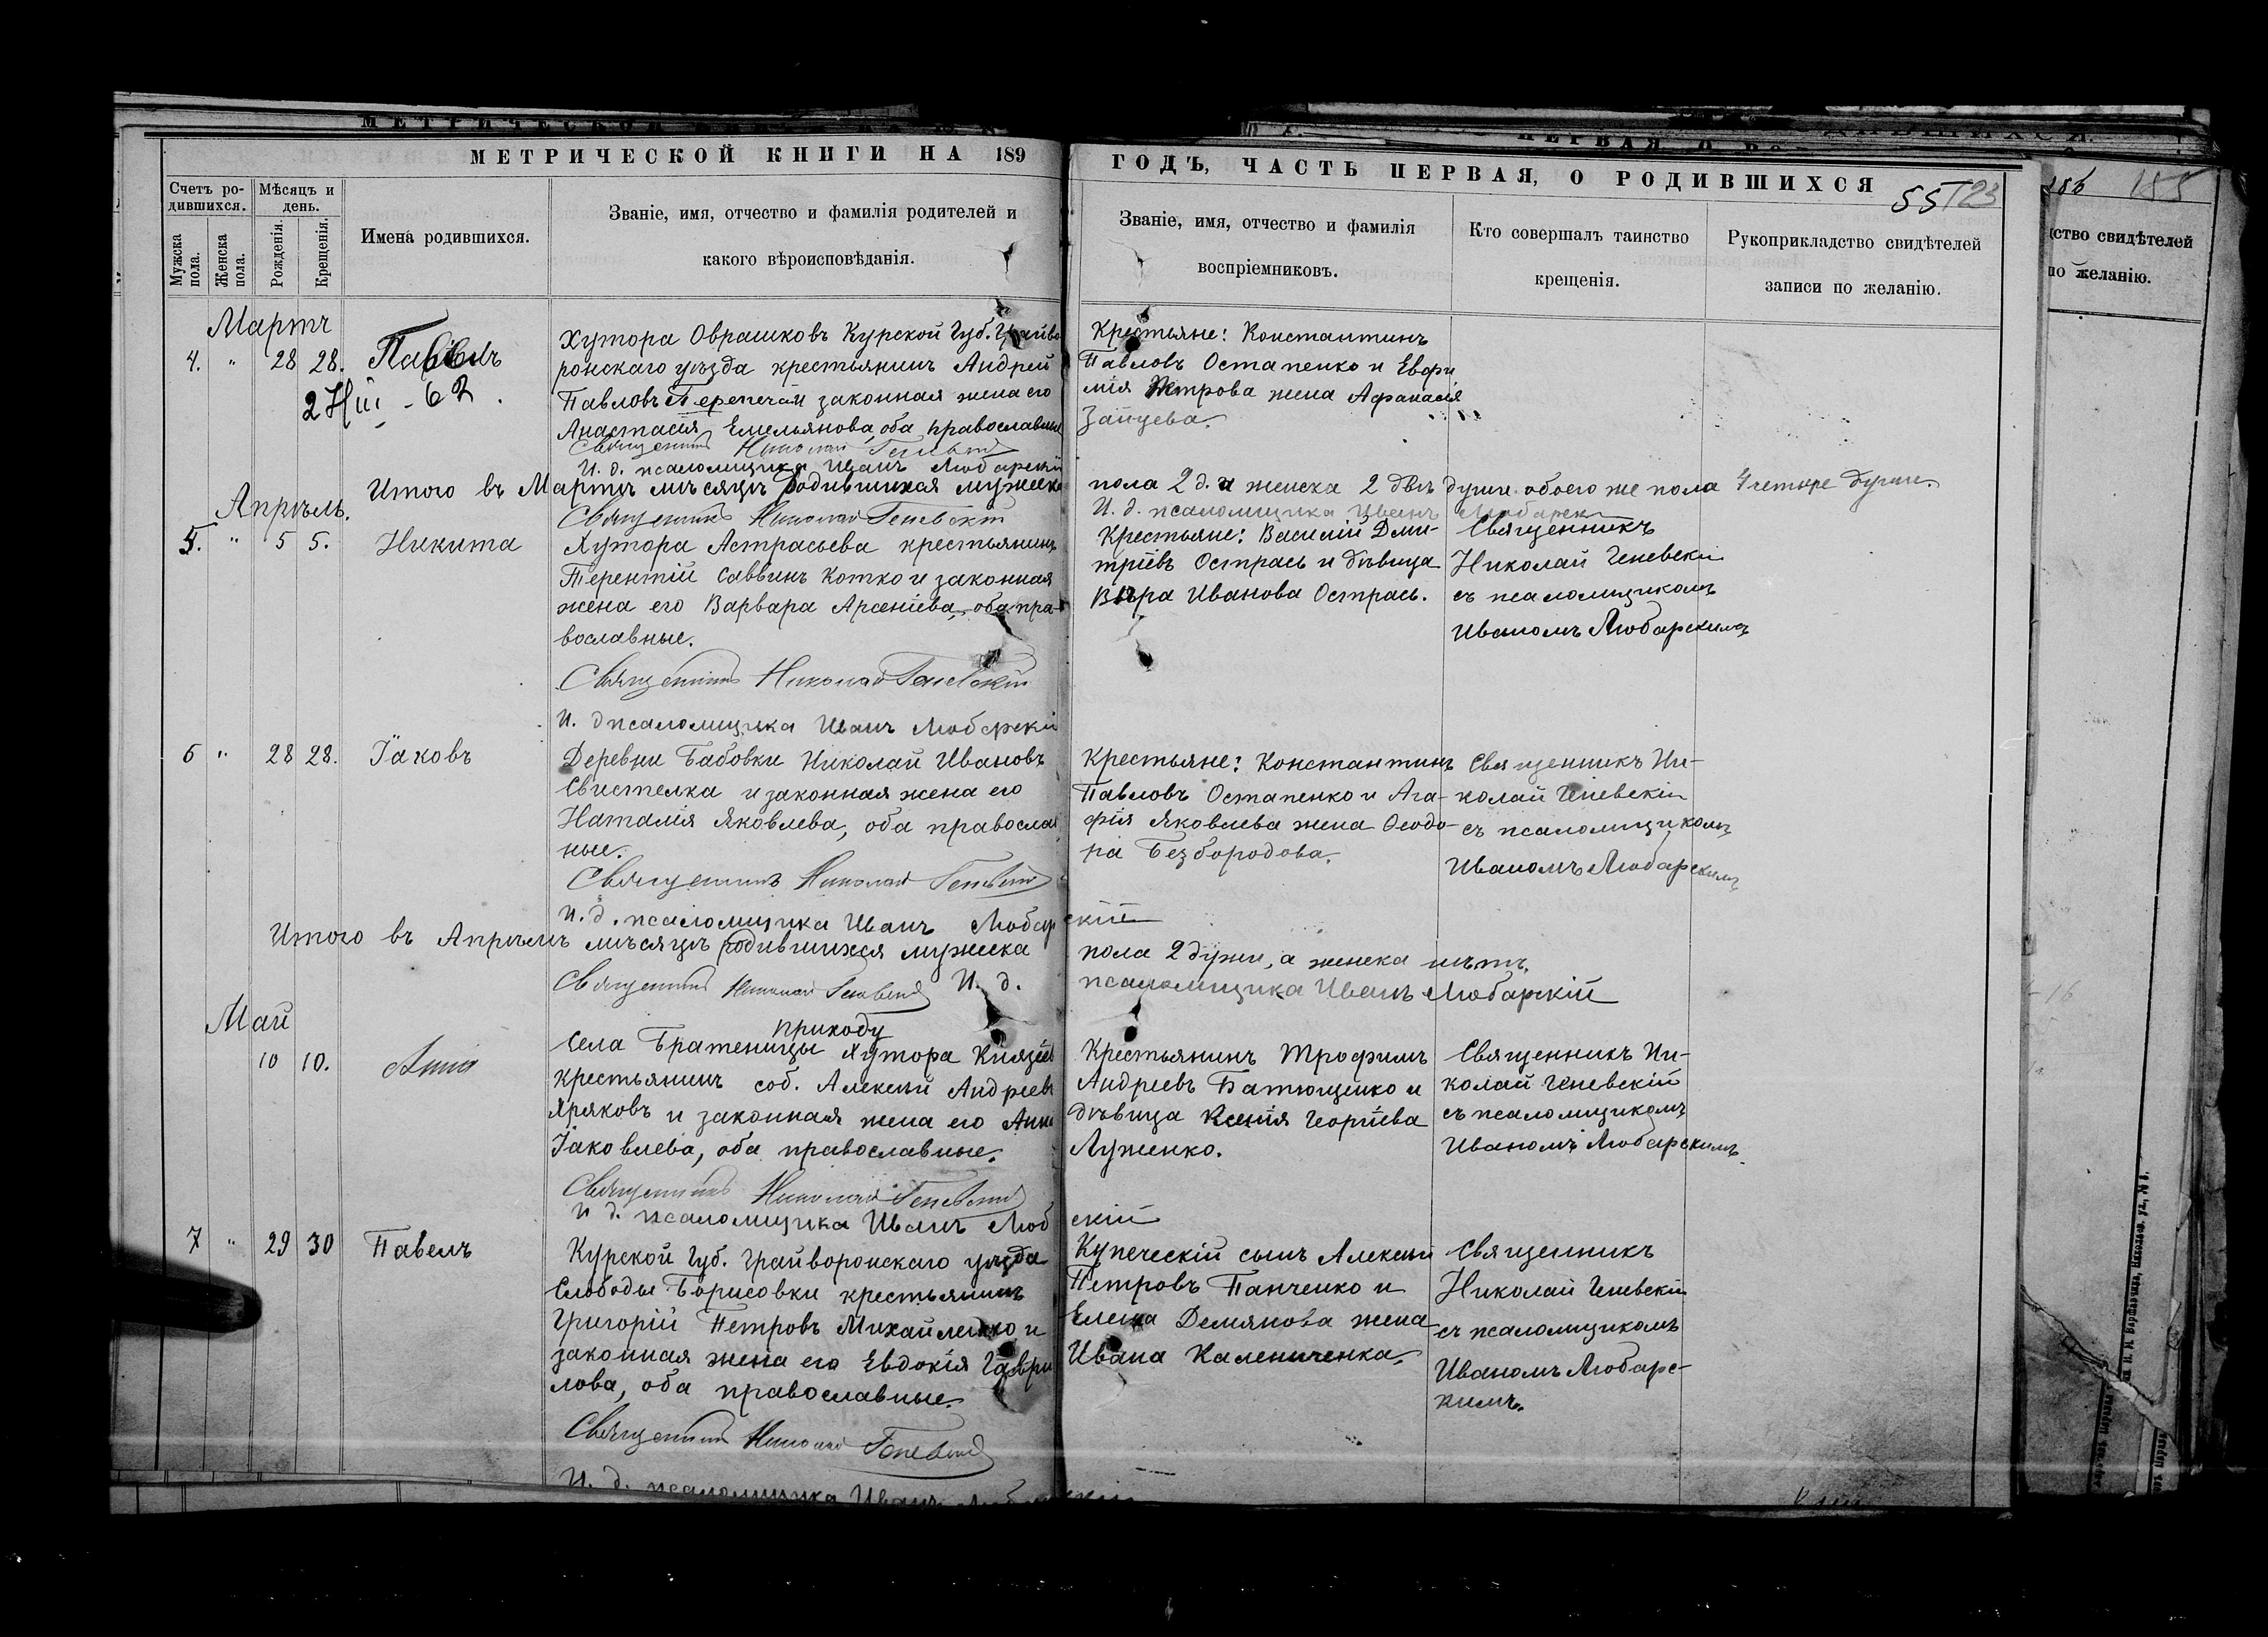 МЕТРИЧЕСКОЙ КНИГИ НА 189
ГОДЪ, ЧАСТЬ ПЕРВАЯ, О РОДИВШИХСЯ
55 123
186 185
Счетъ ро-
дившихся.
Мужска
пола.
Женска
пола.
Мѣсяцъ и
день.
Рожденія.
Крещенія.
Имена родившихся.
Званіе, имя, отчество и фамилія родителей и
какого вѣроисповѣданія.
Званіе, имя, отчество и фамилія
воспріемниковъ.
Кто совершалъ таинство
крещенія.
Рукоприкладство свидѣтелей
записи по желанію.
дство свидѣтелей
по желанію.
Мартъ
4. " 28 28. Павелъ
Хутора Оврашковъ Курской Губ. Грайво
ронскаго уѣзда крестьянинъ Андрей
Павловъ Перепечай законная жена его
Анастасія Емельянова, оба православные
Священникъ Николай Геневскій
И. д. псаломщика Иванъ Любарскій
Крестьяне: Константинъ
Павловъ Остапенко и Евфи
мія Петрова жена Афанасія
Зайцева.
Итого въ Мартѣ мѣсяцѣ родившихся мужска
пола 2 д. и женска 2 двѣ души обоего же пола 4 четыре души.
Священникъ Николай Геневскій
И. д. псаломщика Иванъ Любарскі
Апрѣль.
5. " 5 5. Никита
Хутора Астрасьева крестьянинъ
Терентій Саввинъ Котко и законная
жена его Варвара Арсеніева, оба пра-
вославные.
Священникъ Николай Геневскій
И. д псаломщика Иванъ Любарскі
Крестьяне: Василій Дми-
тріевъ Острась и дѣвица
Вѣра Иванова Острась.
Священникъ
Николай Геневскі
съ псаломщикомъ
Иваномъ Любарскимъ
6 " 28 28. Іаковъ
Деревни Бабовки Николай Ивановъ
Свистелка и законная жена его
Наталія Яковлева, оба правосла
ные.
Священникъ Николай Геневскій
И. д. псаломщика Иванъ Любар
скій
Крестьяне: Константинъ
Павловъ Остапенко и Ага-
фія Яковлева жена Ѳеодо-
ра Безбородова.
Священникъ Ни-
колай Геневскій
съ псаломщикомъ
Иваномъ Любарскимъ
Итого въ Апрѣлѣ мѣсяцѣ родившихся мужска
пола 2 души, а женска нѣтъ.
Священникъ Николай Геневскій И. д.
псаломщика Иванъ Любарскій
Май
10 10. Анна
приходу
Села Братеницы Хутора Князе
крестьянинъ соб. Алексѣй Андреевъ
Яряковъ и законная жена его Анна
Іаковлева, оба православные.
Священникъ Николай Геневскій
И д. псаломщика Иванъ Люб
скій
Крестьянинъ Трофимъ
Андреевъ Батющенко и
дѣвица Ксенія Георгіева
Луженко.
Священникъ Ни-
колай Геневскій
съ псаломщикомъ
Иваномъ Любарскимъ.
7 " 29 30 Павелъ
Курской Губ. Грайворонскаго уѣзда
Слободы Борисовки крестьянинъ
Григорій Петровъ Михайленко и
законная жена его Евдокія Гаври
лова, оба православные.
Священникъ Николай Геневскій
И. д. псаломщика Иванъ
Купеческій сынъ Алексѣй
Петровъ Панченко и
Елена Демянова жена
Ивана Калениченка.
Священникъ
Николай Геневскі
съ псаломщикомъ
Иваномъ Любарс-
кимъ.